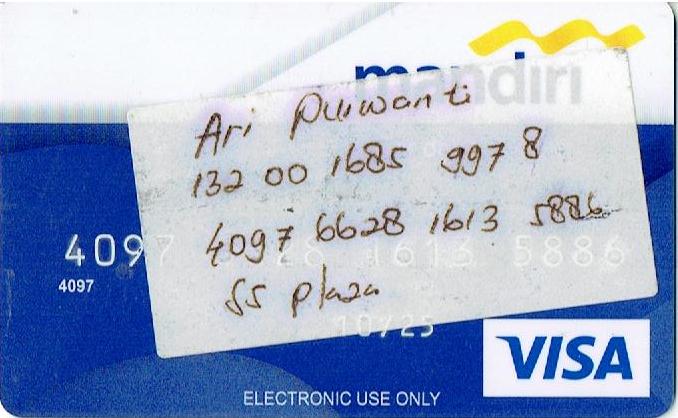 mandiri
Ari Purwanti
132 00 1685 997 8
4097 6628 1613 5886
4097 28 1613 5886
4097
SS plaza
10/25
VISA
ELECTRONIC USE ONLY